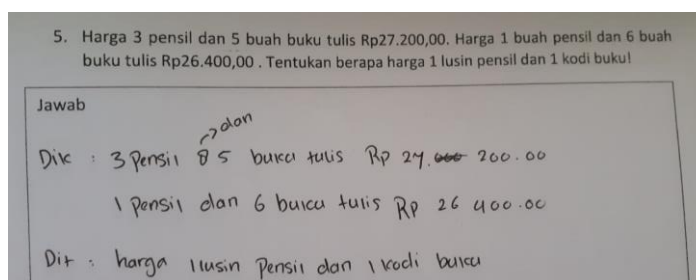 5. Harga 3 pensil dan 5 buah buku tulis Rp27.200,00. Harga 1 buah pensil dan 6 buah
buku tulis Rp26.400,00 . Tentukan berapa harga 1 lusin pensil dan 1 kodi buku!
Jawab
dan
Dik : 3 Pensil 8 5 buku tulis Rp 27. 200.00
1 Pensil dan 6 buku tulis Rp 26 400.00
Dit : harga 1 lusin Pensil dan 1 kodi buku